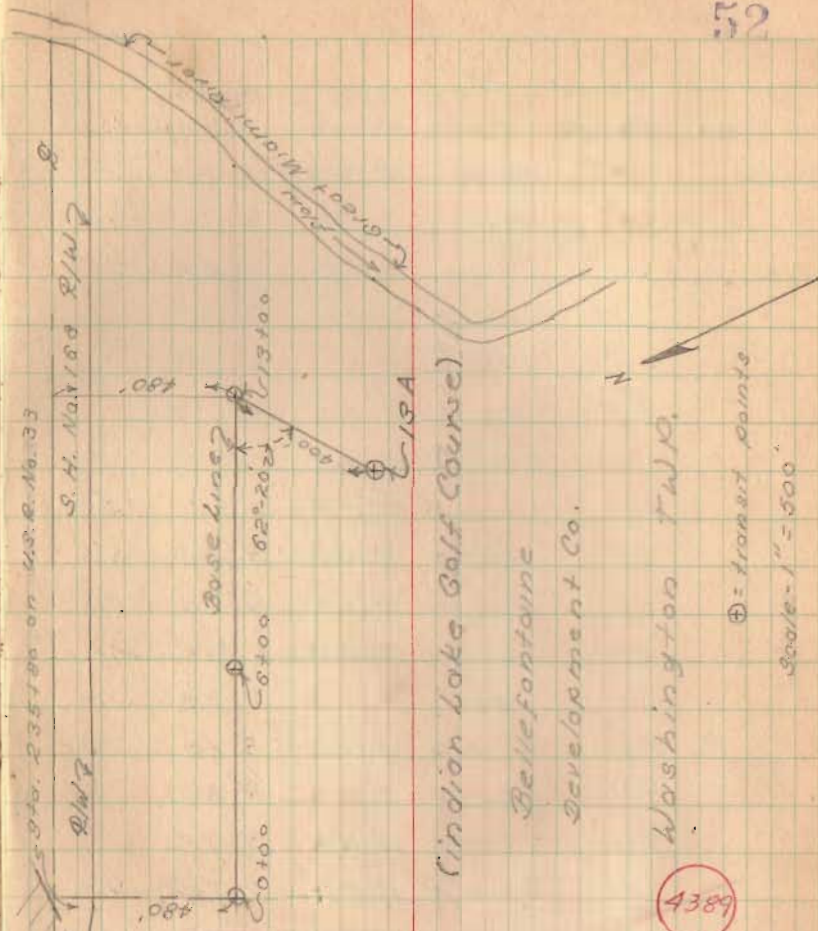 52
Great Miami River
Flow
Sta. 235+80 on U.S.R. No. 33
S. H. No. 168 R/W
R/W
480'
480'
Base Line
13+00
62°-20'
400'
13A
6+00
0+00
N
(Indian Lake Golf Course)
Bellefontaine
Development Co.
Washington TWP.
⊕ = transit points
Scale - 1" = 500'
4389